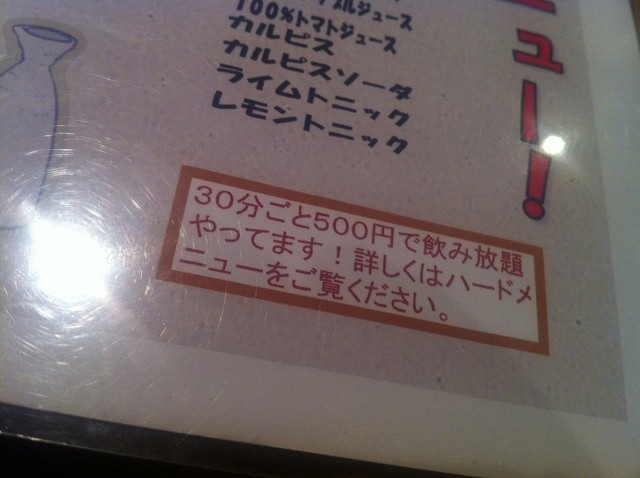 100%トマトジュース
カルピス
カルピスソーダ
ライムトニック
レモントニック
ュー!
30分ごと500円で飲み放題
やってます!詳しくはハードメ
ニューをご覧ください。